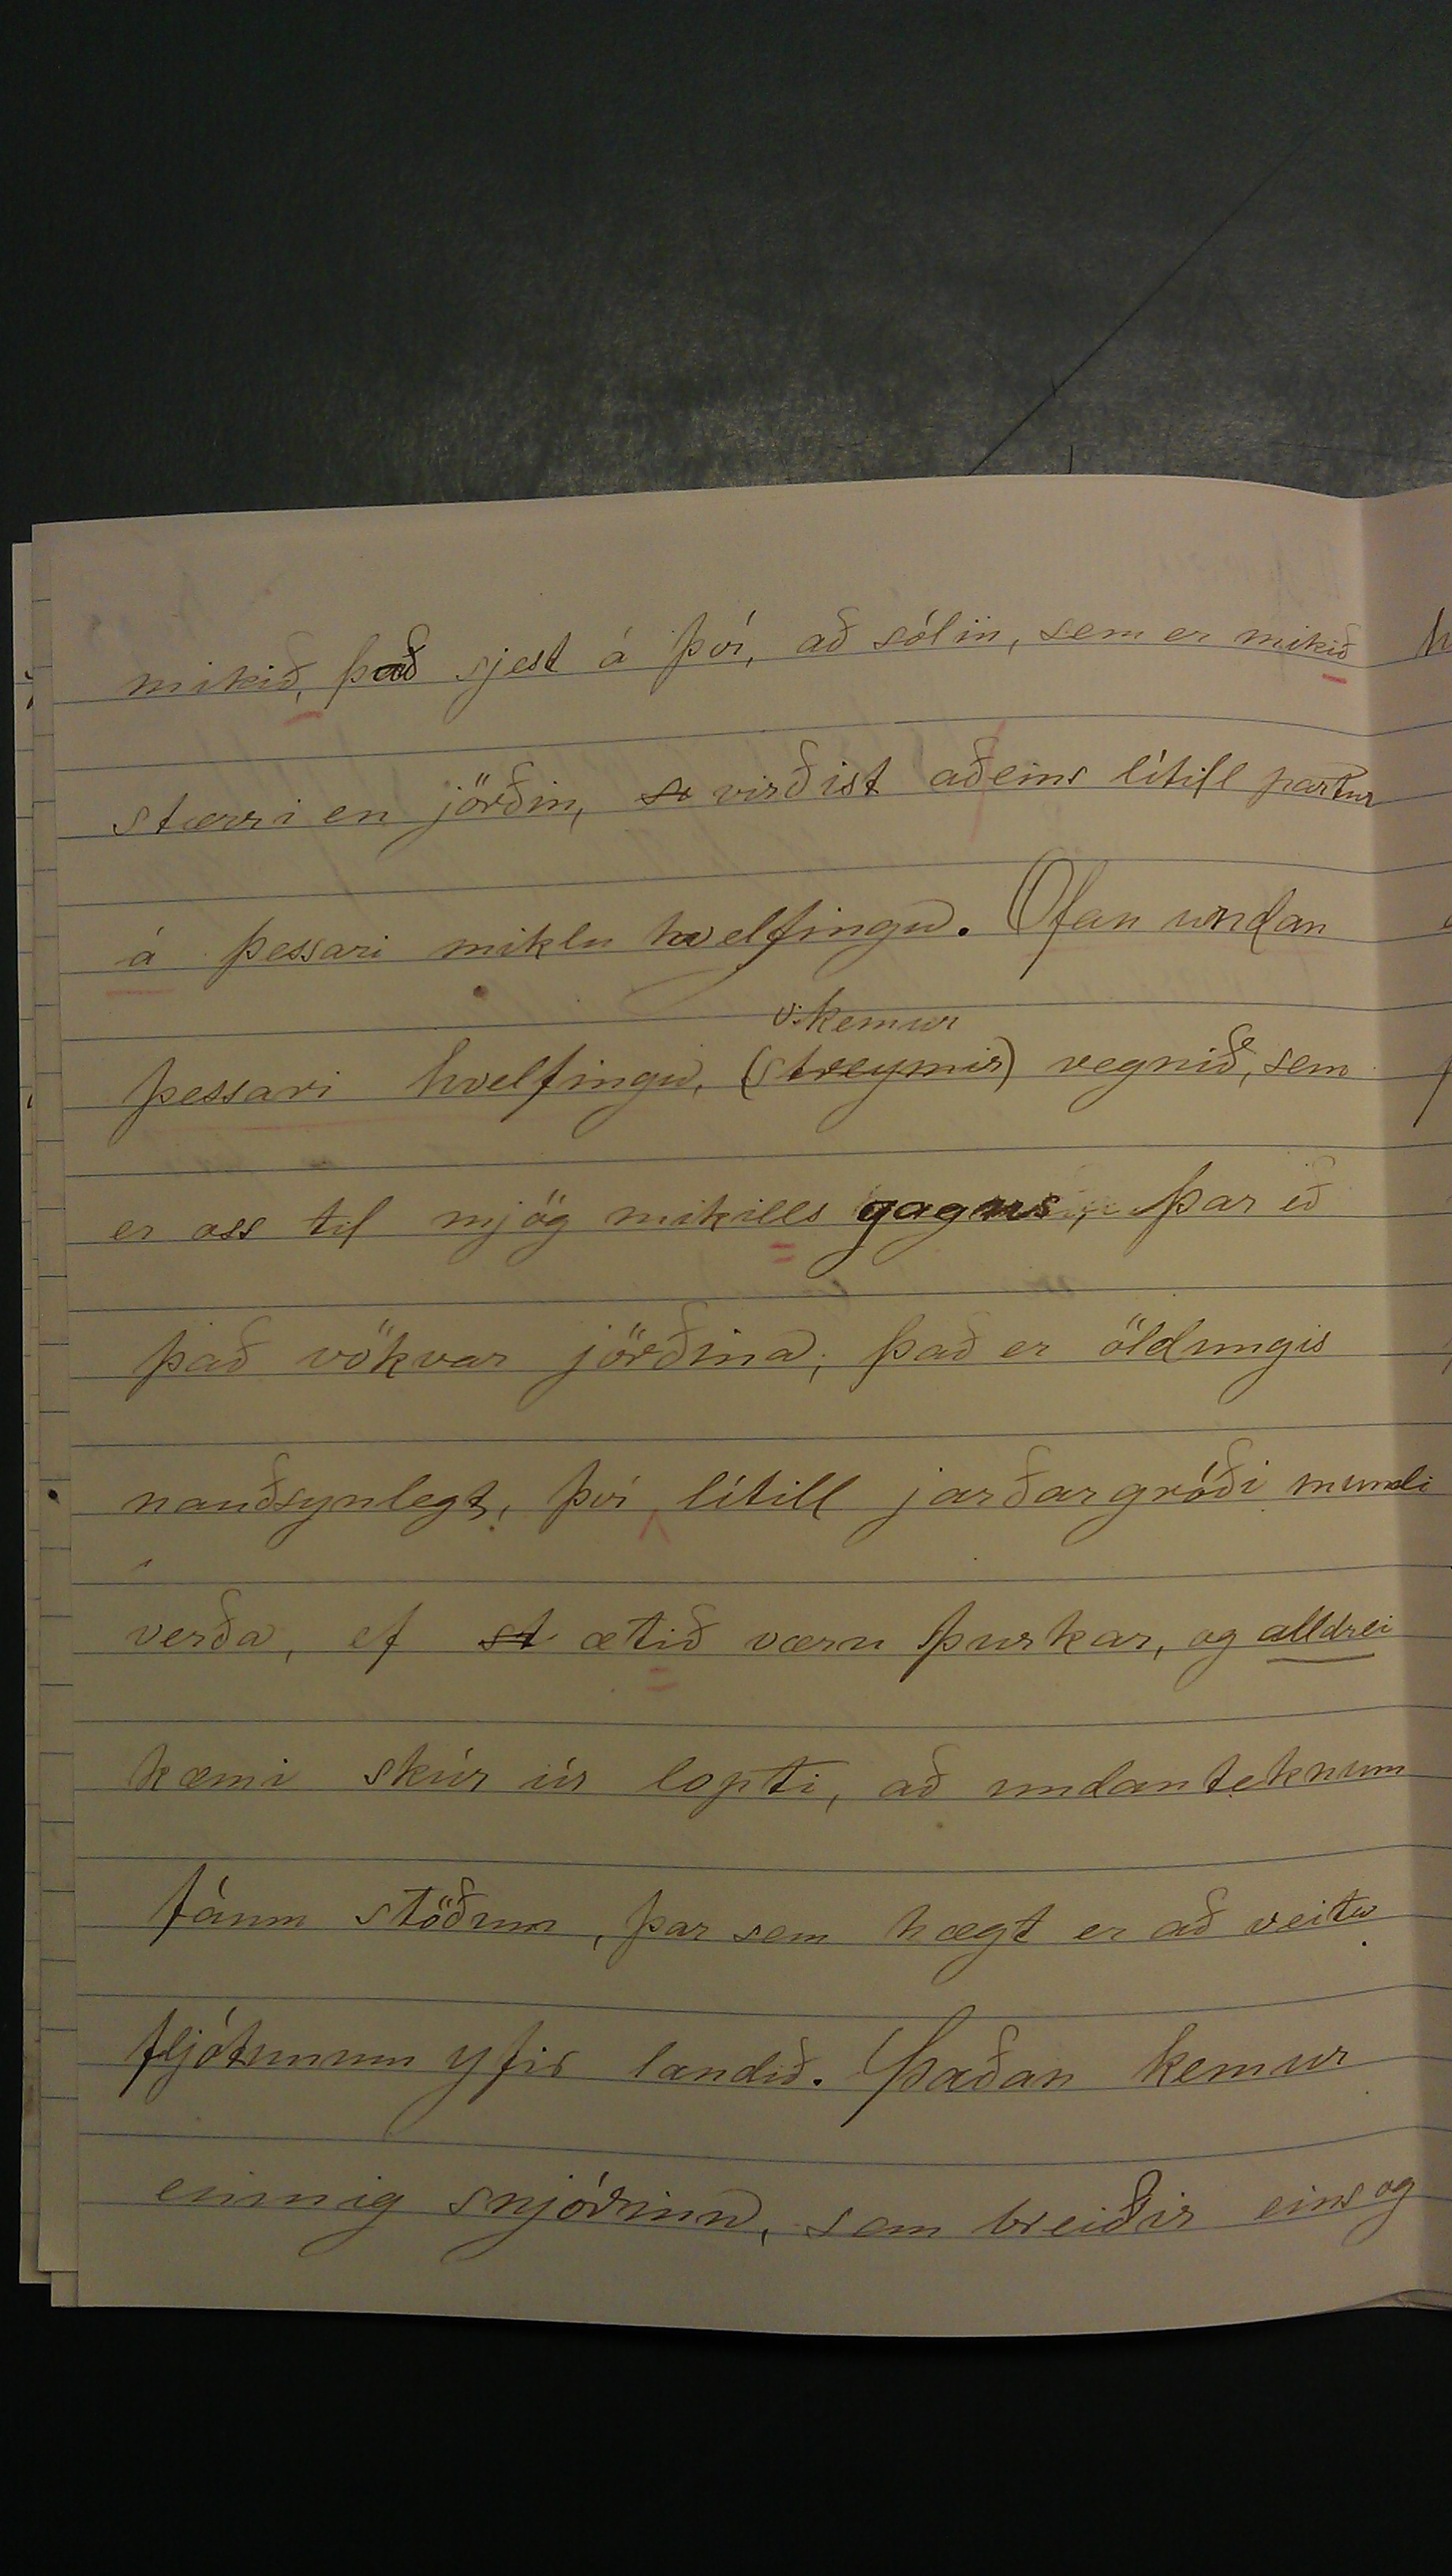 mikið, það sjest á því, að sólin, sem er mikið
stærri en jörðin, virðist aðeins lítill partur
á þessari miklu hvelfingu. Ofan undan
v. kemur
þessari hvelfingu, (streymir) regnið, sem
er oss til mjög mikills gagns, þar eð
það vökvar jörðina; það er öldungis
nauðsynlegt, því lítill jarðargróði mundi
verða, ef st ætið væru þurkar, og alldrei
kæmi skúr úr lopti, að undanteknum
fáum stöðum, þar sem hægt er að veita
fljótunum yfir landið. Þaðan kemur
einnig snjórinn, sem breiðir eins og